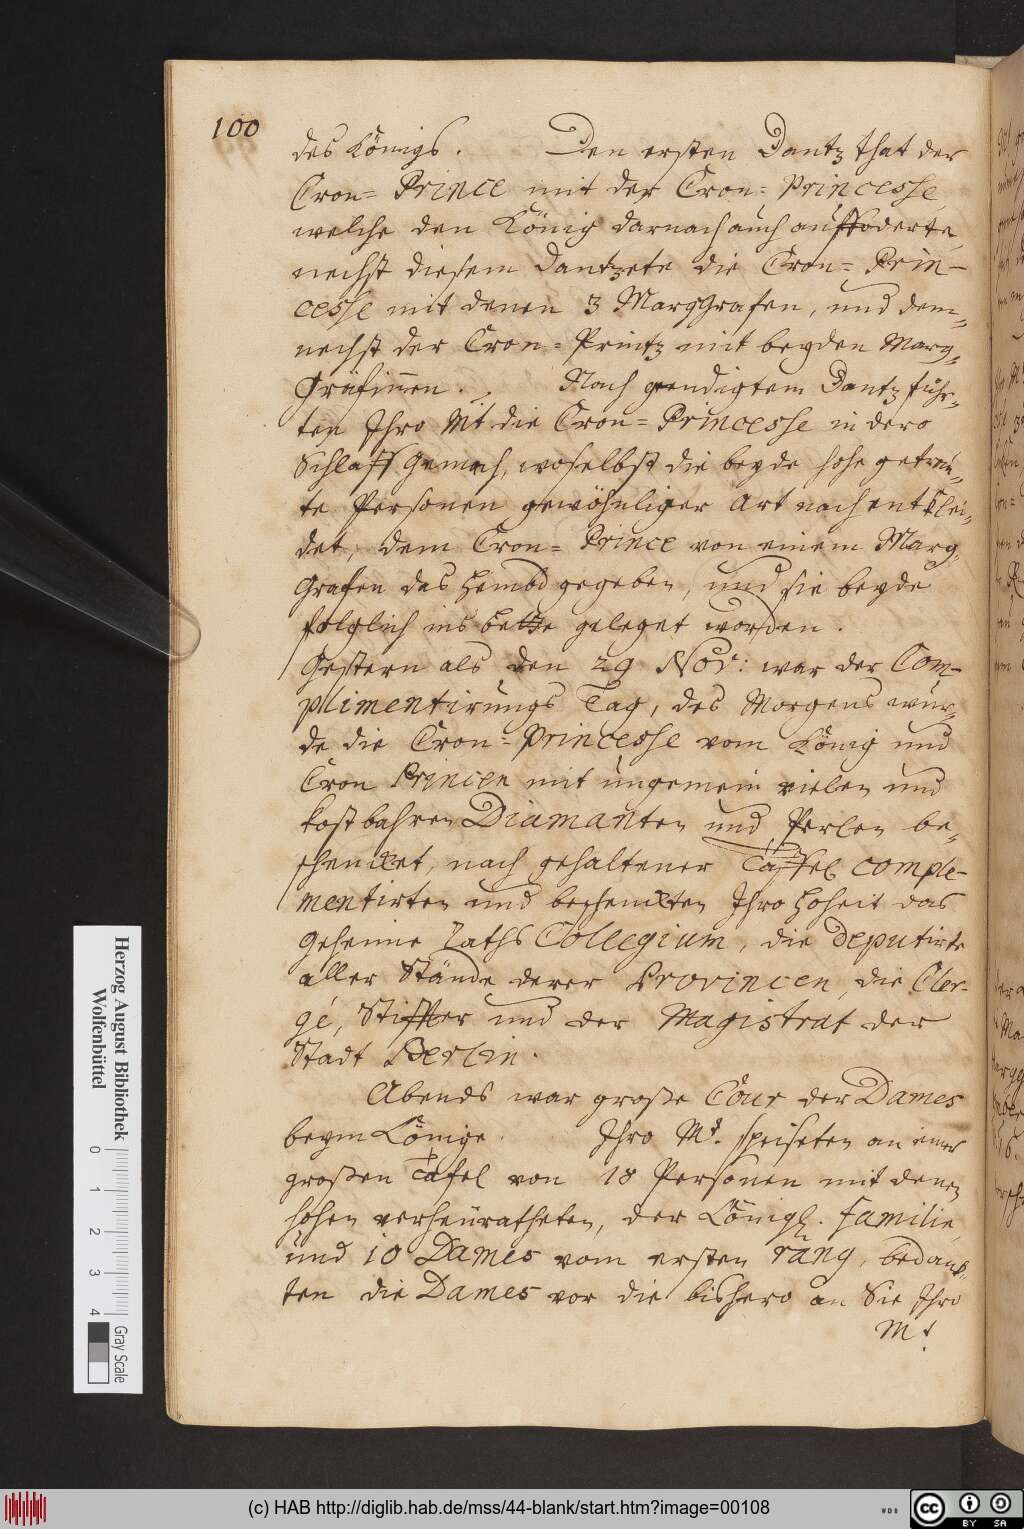 100
des Königs. Den ersten Dantz that der
Cron= Prince mit der Cron= Princesse,
welche den König darnach auch auffoderte,
nechst diesem dantzete die Cron= Prin-
cesse mit denen 3 Marggrafen, und dem-
nechst der Cron= Printz mit beyden Marg-
Gräfinnen. Nach geendigtem Dantz führ-
ten Ihro Mt. die Cron= Princesse in dero
Schlaff Gemach, woselbst die beyde hohe getrau-
te Personen gewöhnliger Art nach entklei-
det, dem Cron= Prince von einem Marg-
Grafen das Hembd gegeben, und sie beyde
folglich ins Bette geleget worden.
Gestern als den 29 Nov: war der Com-
plimentirungs Tag, des Morgens wur-
de die Cron= Princesse vom König und
Cron Princen mit ungemein vielen und
kostbahren Diamanten und Perlen be-
schencket, nach gehaltener Taffel comple-
mentirten und beschenckten Ihro Hoheit das
Geheime Raths Collegium, die Deputirte
aller Stände derer Provincen, die Cler-
gé, Stiffter und der Magistrat der
Stadt Berlin.
Abends war große Cour der Dames
beym Könige. Ihro Mt. speiseten an einer
großen Tafel von 18 Personen mit denen
hohen verheuratheten, der Königl. Familie,
und 10 Dames vom ersten rang, bedank-
ten die Dames vor die bishero an Sie Ihro
Mt.
Herzog August Bibliothek
Wolfenbüttel
0 1 2 3 4
Gray Scale
(c) HAB http://diglib.hab.de/mss/44-blank/start.htm?image=00108
WDB
cc BY SA